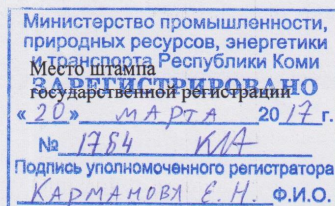 Министерство промышленности,
природных ресурсов, энергетики
и транспорта Республики Коми
Место штампа
ЗАРЕГИСТРИРОВАНО
государственной регистрации
«20» МАРТА 2017 г.
№ 1754 КЛА
Подпись уполномоченного регистратора
КАРМАНОВА Е. Н. Ф.И.О.